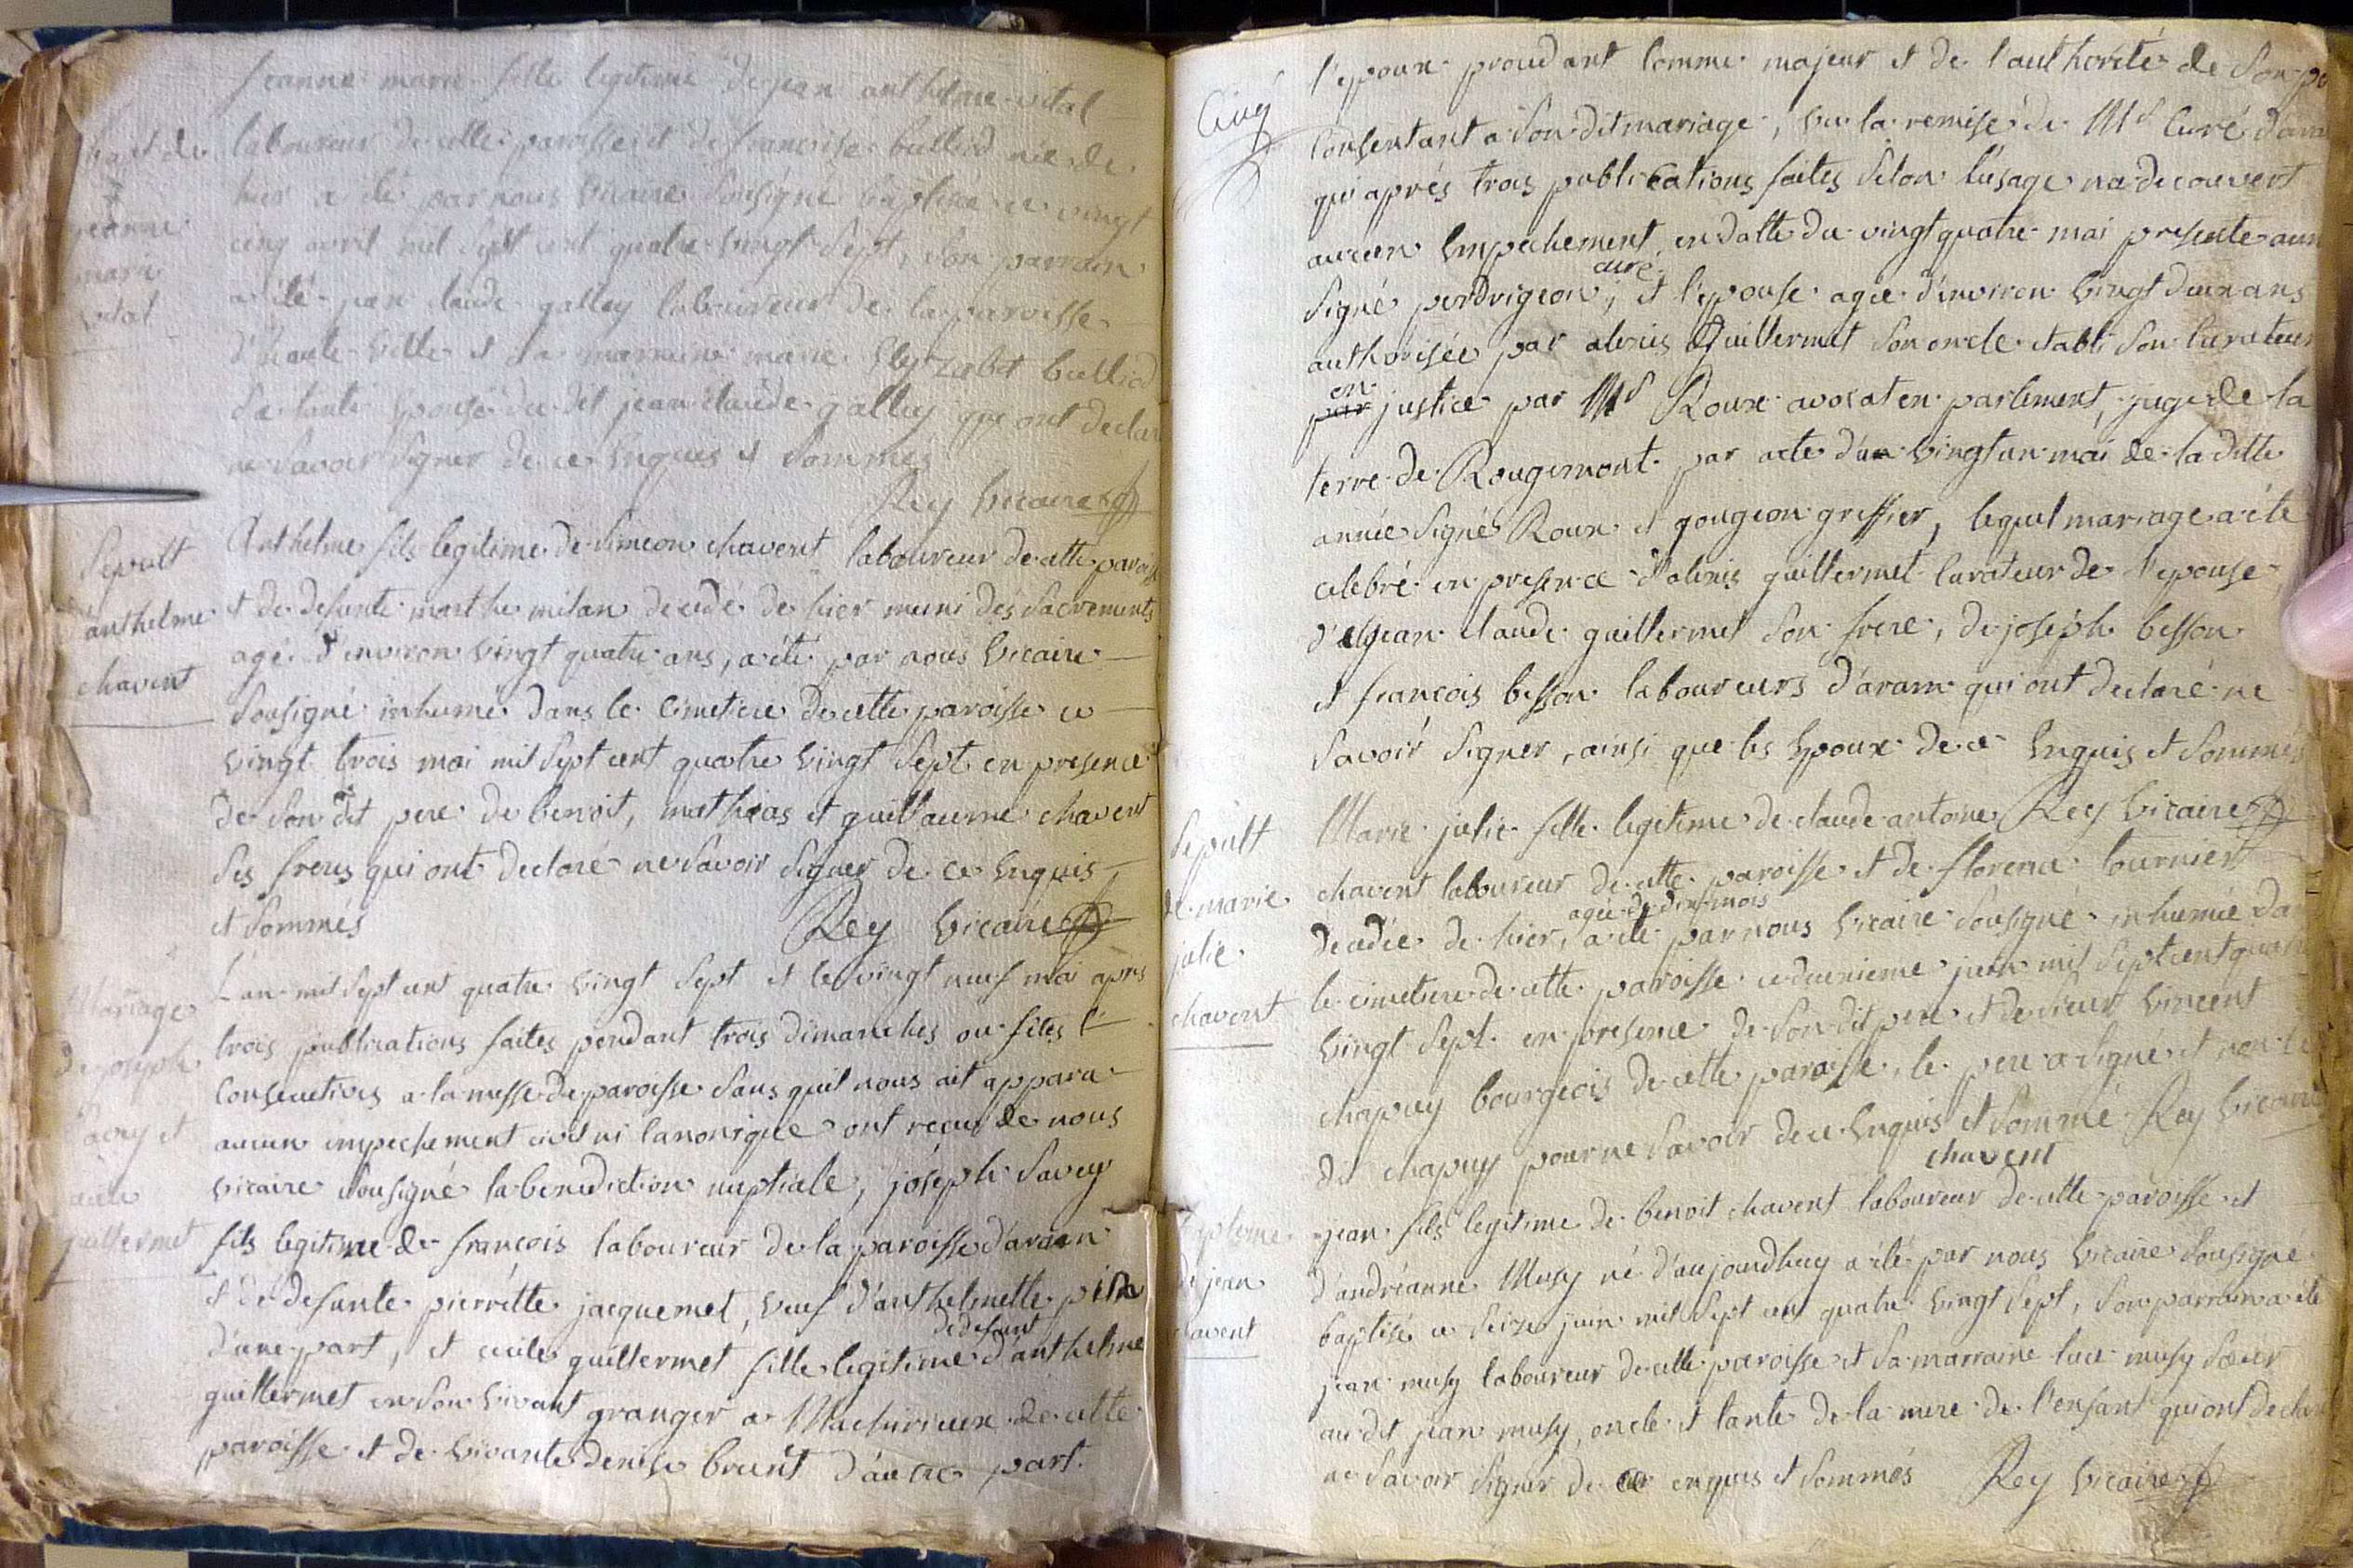 jeanne marie fille legitime de jean anthelme vital
bapt de
laboureur de cette paroisse et de francoise bulliod née de
hier a été par nous vicaire sousigné baptisée ce vingt
jeanne
cinq avril mil sept cent quatre vingt sept, son parrain
marie
a été jean claude galley laboureur de la paroisse
vital
d'haute ville et sa marraine marie Elyzabet bulliod
sa tante Epouse du dit jean claude galley qui ont declaré
ne savoir signer de ce Enquis et sommés
Rey vicaire
Sepult
anthelme
chavent
Anthelme fils legitime de simeon chavent laboureur de cette paroisse
et de defunte marthe milan decedé de hier muni des sacrements
agé d'environ vingt quatre ans, a été par nous vicaire
sousigné inhumé dans le cimetiere de cette paroisse ce
vingt trois mai mil sept cent quatre vingt sept en presence
de son dit pere de benoit, mathias et guillaume chavent
ses freres qui ont declaré ne savoir signer de ce Enquis
et sommés Rey vicaire
Mariage
de joseph
savey et
cecile
guillermet
L'an mil sept cent quatre vingt sept et le vingt neuf mai apres
trois publications faites pendant trois dimanches ou fêtes
consecutives a la messe de paroisse sans quil nous ait apparu
aucun empechement civil ni canonique ont recu de nous
vicaire sousigné la benediction nuptiale, joseph savey
fils legitime de francois laboureur de la paroisse d'aranc
et de defunte pierrette jacquemet, veuf d'anthelmette
de defunt
d'une part, et cecile guillermet fille legitime d'anthelme
guillermet en son vivant granger a Machurieux de cette
paroisse et de vivante denise brunt d'autre part.
Cinq
l'epoux procedant comme majeur et de l'authorité de son pe
consentant a son dit mariage, vu la remise de Mr Curé d'ara
qui aprés trois publications faites selon l'usage na decouvert
aucun Empechement en datte du vingt quatre mai presente ann
curé
signé perdrigeon, et l'epouse agee d'environ vingt deux ans
authorisée par alexis Guillermet son oncle etabli son curateur
en
par justice par Mr Roux avocat en parlement, juge de la
terre de Rougemont par acte du vingt un mai de la ditte
année signé Roux et gougeon greffier, lequel mariage a été
celebré en presence d'alexis guillermet curateur de l'epouse
d'jean claude guillermet son frere, de joseph besson
et francois besson laboureurs d'aranc qui ont declaré ne
savoir signer, ainsi que les Epoux de ce Enquis et sommés
Rey vicaire
Sepult
de marie
julie
chavent
Marie julie fille legitime de claude antoine
chavent laboureur de cette paroisse et de florence tournier
agée de dix mois
decedée de hier, a été par nous vicaire sousigné inhumée dans
le cimetiere de cette paroisse ce deuxieme juin mil sept cent quatre
vingt sept en presence de son dit pere et de sieur vincent
chapuy bourgeois de cette paroisse, le pere a signé et non le
dit chapuy pour ne savoir de ce Enquis et sommé Rey vicaire
chavent
Baptisme
de jean
chavent
jean fils legitime de benoit chavent laboureur de cette paroisse et
d'andréanne Musy né d'aujourdhuy a été par nous vicaire sousigné
baptisé ce seize juin mil sept cent quatre vingt sept, son parrain a été
jean musy laboureur de cette paroisse et sa marraine luce musy soeur
au dit jean musy, oncle et tante de la mere de l'enfant qui ont declaré
ne savoir signer de ce enquis et sommés Rey vicaire